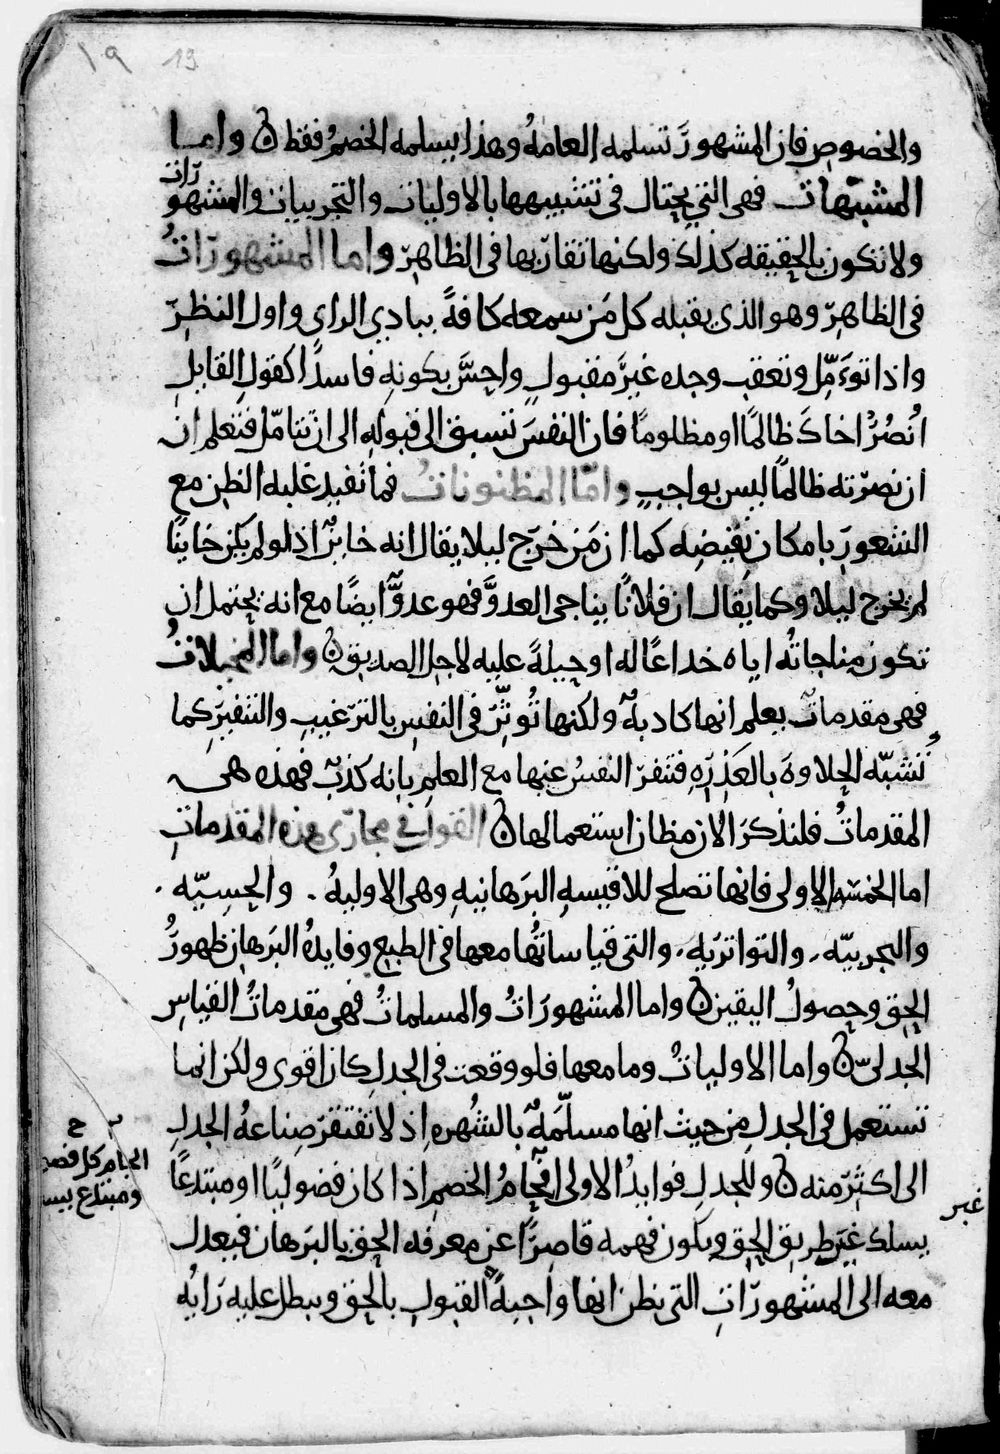 ١٩ 19
والخصوص فان المشهور تسلمه العامة وهذا يسلمه الخصم فقط ن واما
المشبهات فهى التي يحتال في تشبيهها بالاوليات والتجربيات والمشهورات
ولا تكون بالحقيقه كذلك ولكنها تقاربها في الظاهر واما المشهورات
في الظاهر وهو الذي يقبله كل من سمعه كافةً ببادي الراي واول النظر
واذا تومّل وتعقب وجده غير مقبول واحسّ بكونه فاسدًا كقول القايل
انصُر اخاك ظالمًا او مظلومًا فان النفس تسبق الى قبوله الى ان تتامّل فتعلم ان
ان نصرته ظالمًا ليس بواجب وامّا المظنونات فما تفيد غلبه الظن مع
الشعور بامكان نقيضه كما ان من خرج ليلا يقال انه خاين اذ لو لم يكن خاينًا
لم يخرج ليلا وكما يقال ان فلانًا يناجي العدوّ فهو عدوٌّ ايضًا مع انه يحتمل ان
تكون مناجاتُه اياه خداعًا له او حيلةً عليه لاجل الصديق ن واما المخيلات
فهى مقدماتٌ يعلم انها كاذبه ولكنها تُوثّر في النفس بالترغيب والتنفير كما
تُشبّه الحلاوه بالعَذِره فتنفر النفس عنها مع العلم بانه كذب فهذه هى
المقدماتُ فلنذكر الان مظان استعمالها ن القول في مجاري هذه المقدمات
اما الخمسة الاولى فانها تصلح للاقيسه البرهانيه وهى الاوليهُ . والحسيّه .
والتجربيّه . والتواتريه . والتى قياساتُها معها في الطبع وفايدة البرهان ظهورُ
الحق وحصولُ اليقين ن واما المشهورات والمسلماتُ فهى مقدماتُ القياس
الجدلىّ ن واما الاوليات وما معها فلو وقعت في الجدل كان اقوى ولكن انما
تستعمل في الجدل من حيث انها مسلّمةٌ بالشُهره اذ لا تفتقر صناعهُ الجدل
الى اكثر منه ن وللجدل فوايدُ الاولى افحامُ الخصم اذا كان فضوليًا او مبتدعًا
يسلك غير طريق الحق ويكون فهمه قاصرًا عن معرفه الحق بالبرهان فيعدل
معه الى المشهورات التى يظن انها واجبةُ القبول بالحق ويبطل عليه رايُه
كل
ومبتدع
غير